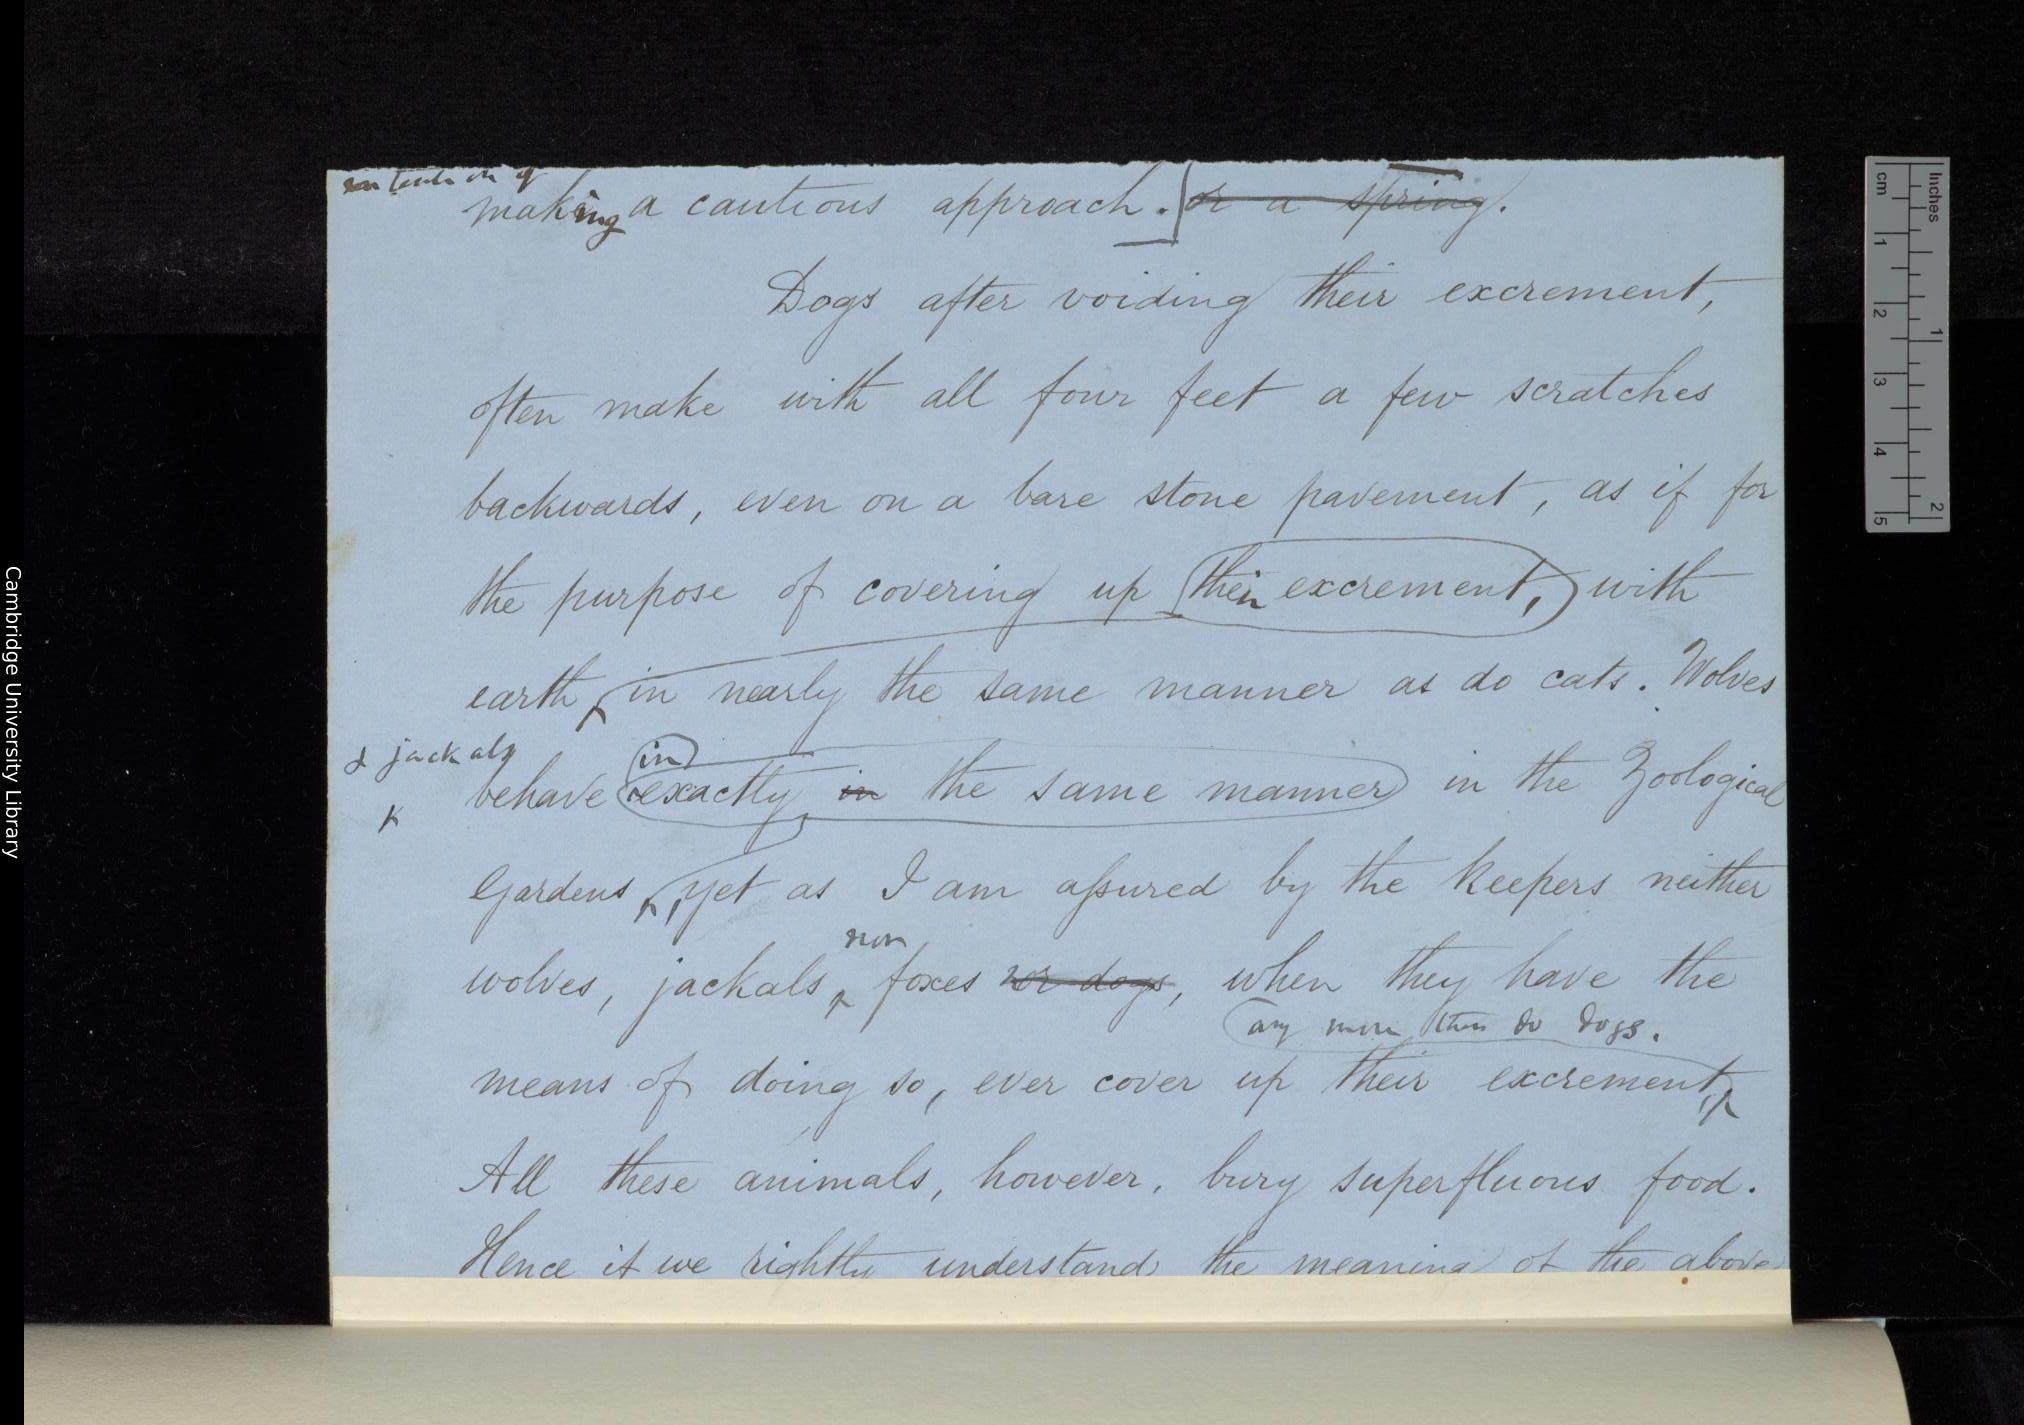 intention of
making a cautious approach. or a spring.
Dogs after voiding their excrement,
often make with all four feet a few scratches
backwards, even on a bare stone pavement, as if for
the purpose of covering up their excrement, with
earth, in nearly the same manner as do cats. Wolves
& jackals
in
behave exactly in the same manner in the Zoological
Gardens, yet as I am assured by the keepers neither
nor
wolves, jackals, foxes nor dogs, when they have the
any more than do dogs.
means of doing so, ever cover up their excrement,
All these animals, however, bury superfluous food.
Hence if we rightly understand the meaning of the above
Cambridge University Library
cm 1 2 3 4 5
Inches 1 2